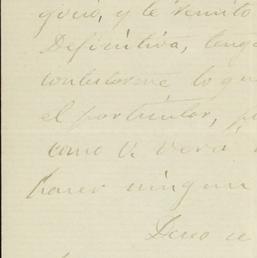 gocio, y le remito
Definitiva, teng
contestarme lo qu
el particular, p
como V. verá
hacer ningun
Deseo